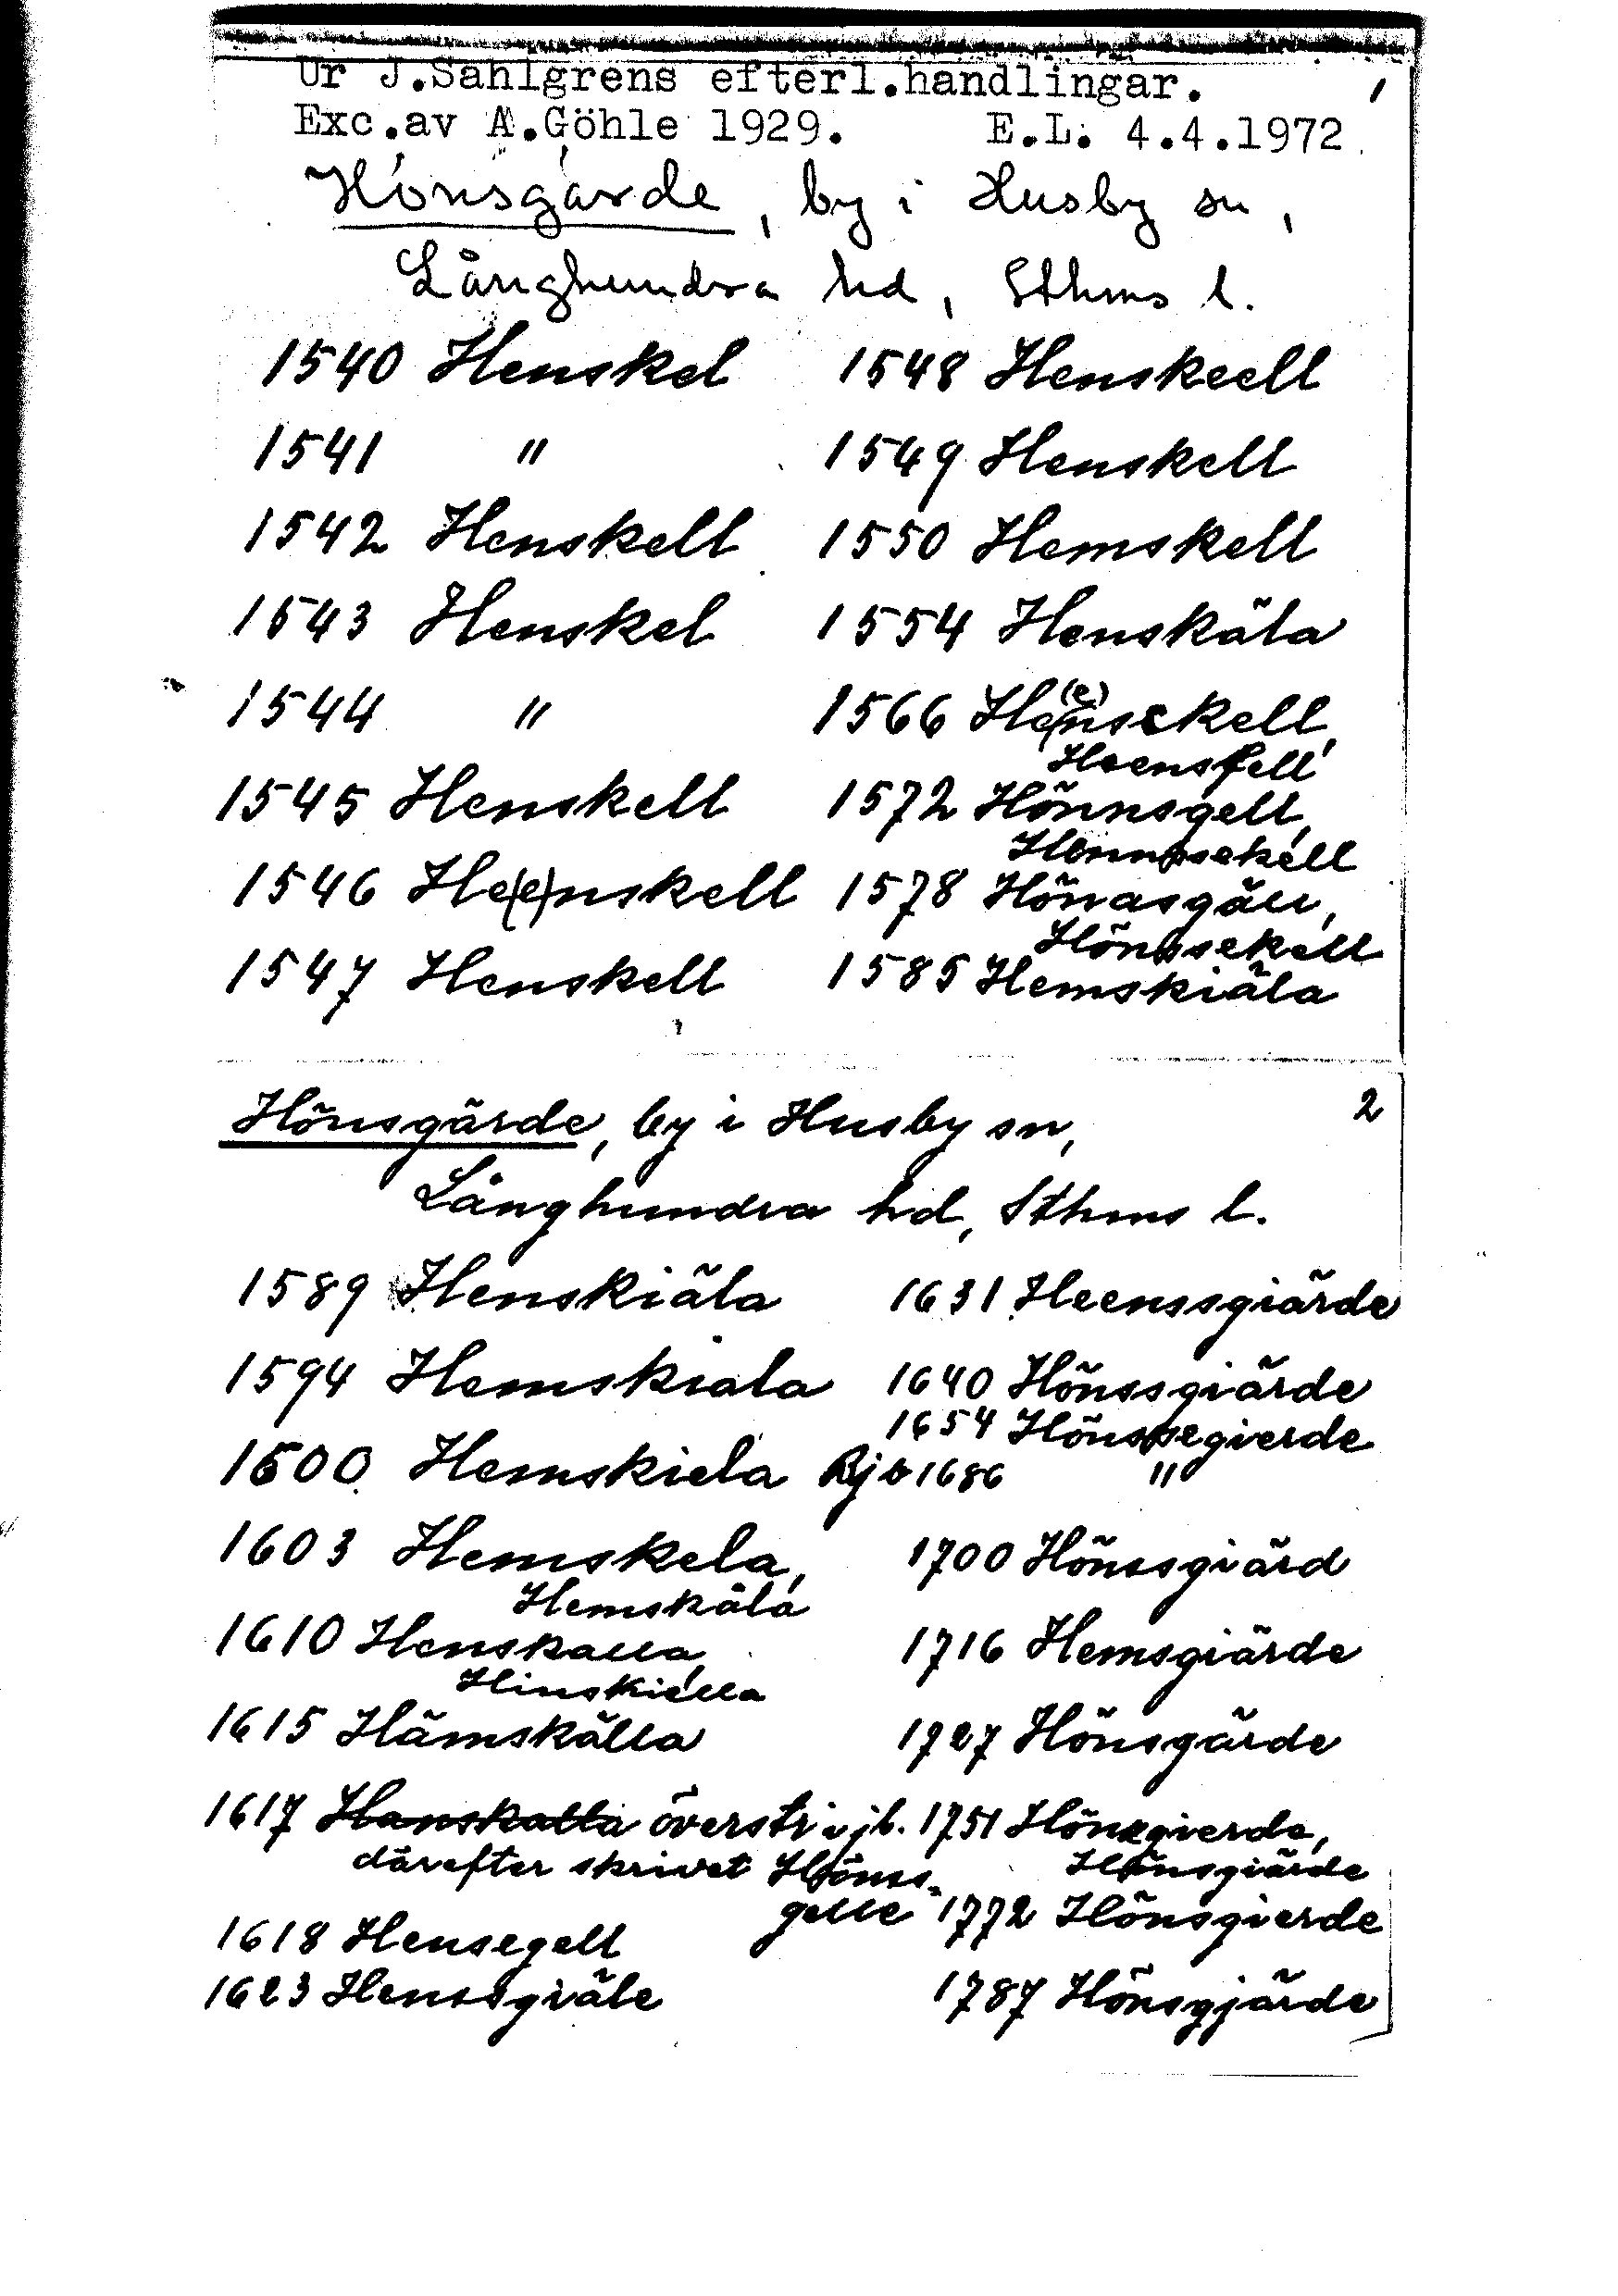 Ur J.Sahlgrens efterl.handlingar. 1
Exc.av A.Göhle 1929. E.L. 4.4.1972.
Hönsgärde, by i Husby sn,
Långhundra hd, Sthms l.
1540 Henskel 1548 Henskeell
1541 " 1549 Henskell
1542 Henskell 1550 Hemskell
1543 Henskel 1554 Henskäla
1544 " 1566
1545 Henskell 1572 Hönnsgell,
1546 He(e)nskell 1578 Hönasgäll,
1547 Henskell 1585 Hemskiäla
Hönsgärde, by i Husby sn, 2
Långhundra hd, Sthms l.
1589 Henskiäla 1631 Heenssgiärde
1594 Hemskiala 1640 Hönssgiärde
1654
1600 Hemskiela Rjb 1686 "
1603 Hemskela, 1700 Hönssgiärd
Hemskäla
1610 Henskalla, 1716 Hemsgiärde
Hinskiella
1615 Hämskälla 1727 Hönsgärde
1617 Hanskalla överstr i jb. 1751
därefter skrivet Hönss- Hönsgiärde
gelle 1772 Hönsgierde
1618 Hensegell
1623 Henssgiäle 1787 Hönsgjärde